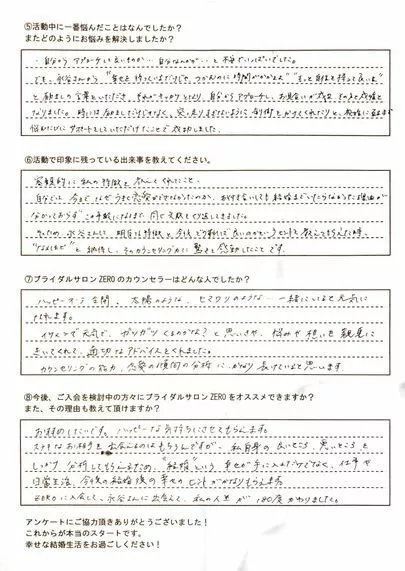 ⑤活動中に一番悩んだことはなんでしたか?
またどのようにお悩みを解決しましたか?
自分からアプローチして良いものか… 自分なんかが… と不安でいっぱいでした。
でも、永谷さんから
と励ましの言葉をいただき、それがキッカケとなり、自分からアプローチし、お見合いが成立
なりました。時には励ましだけでなく、
悩むたびにサポートをしていただけたことで成功しました。
⑥活動で印象に残っている出来事を教えてください。
客観的に私の特徴を
自分では、今までなぜうまく恋愛ができなかったのか、お付き合いしても結婚までいたらなかった理由が
わからず この年齢になるまで同じ失敗をくり返してきました。
そのため、永谷さんに、明日は特徴と今後どう動けば良いのかというヒントを教えてもらえた時、
"なるほど" と納得し、そのカウンセリング力に驚きと感動したことです。
⑦ブライダルサロンZEROのカウンセラーはどんな人でしたか?
ハッピーオーラ全開、太陽のような、ヒマワリのような… 一緒にいると元気に
なれます。
イケメンで元気で、ガツガツくるのかな?と思いきや、悩みや想いを親身に
きいてくれて、適切なアドバイスをくれました。
カウンセリングの能力、恋愛の傾向の分析に、かなり長けていると思います
⑧今後、ご入会を検討中の方々にブライダルサロンZEROをオススメできますか?
また、その理由も教えて頂けますか?
おすすめしたいです。ハッピーな気持ちにさせてもらえます。
ステキなお相手と出会えるのはもちろんですが、私自身の良いところ、悪いところを
しっかり分析してもらえるため、"結婚"という幸せが手に入るだけでなく、仕事や
日常生活、今後の結婚後の幸せのヒントがかなりもらえます。
ZEROに入会して、永谷さんに出会えて、私の人生が180度かわりました。
アンケートにご協力頂きありがとうございました!
これからが本当のスタートです。
幸せな結婚生活をお過ごしください!